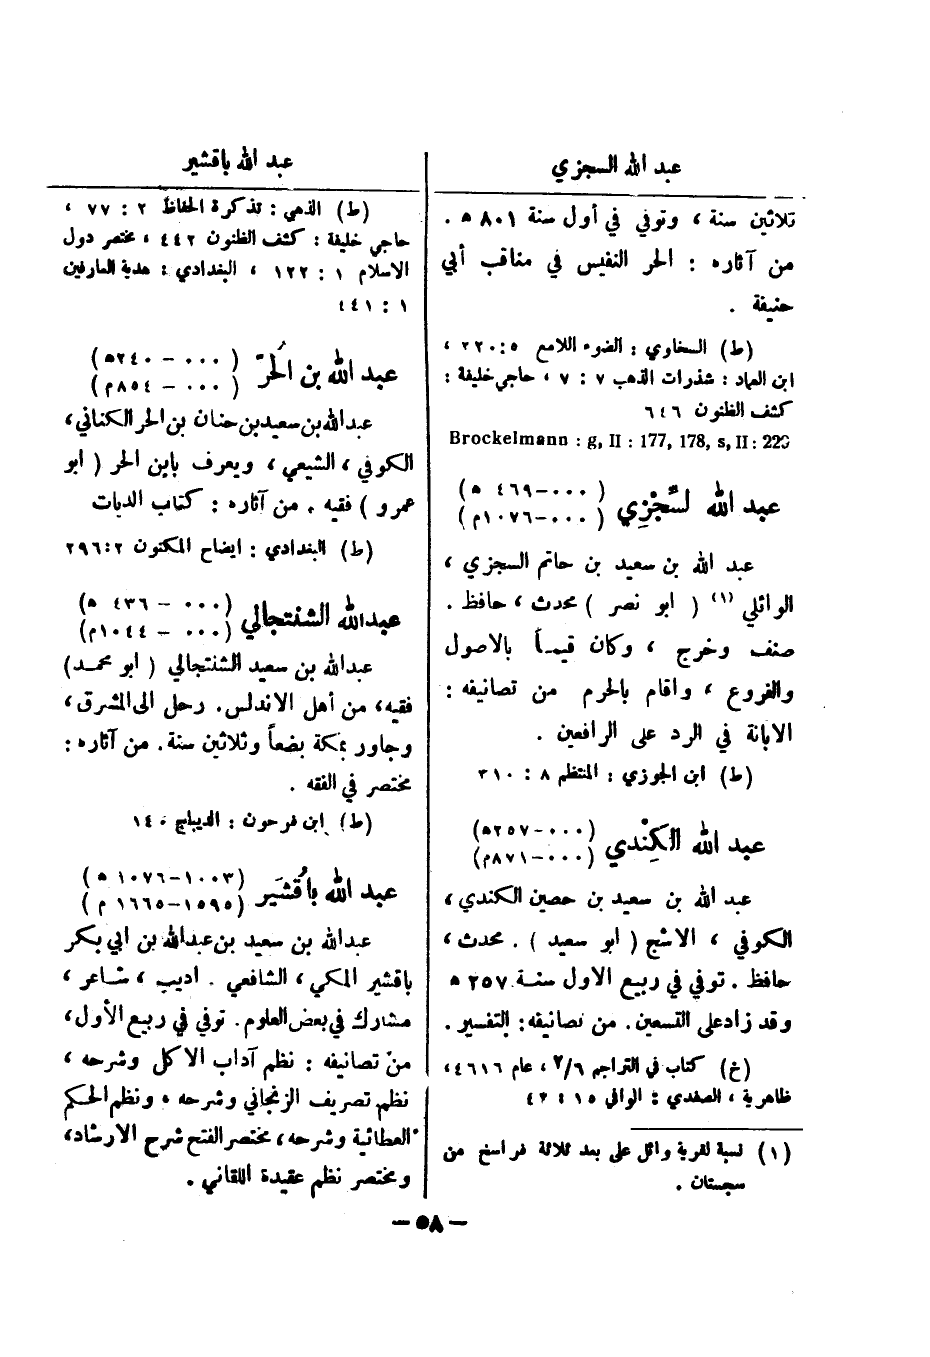 عبد الله السجزي
ثلاثين سنة ، وتوفي في أول سنة ٨٠١ ه .
من آثاره : الحر النفيس في مناقب أبي
حنيفة .
(ط) السخاوي : الضوء اللامع ٥ : ٢٢٠ ،
ابن العماد : شذرات الذهب ٧ : ٧ ، حاجي خليفة :
كشف الظنون ٦٤٦
Brockelmann : g, II : 177, 178, s, II : 223
عبد الله لسِّجْزِي ( ٠٠٠-٤٦٩ ه )
( ٠٠٠-١٠٧٦م )
عبد الله بن سعيد بن حاتم السجزي ،
الوائلي (١) ( ابو نصر ) محدث ، حافظ .
صنف وخرج ، وكان قيماً بالاصول
والفروع ، واقام بالحرم من تصانيفه :
الابانة في الرد على الرافعين .
(ط) ابن الجوزي : المنتظم ٨ : ٣١٠
عبد الله الكِنْدي (٠٠٠-٢٥٧ه)
(٠٠٠-٨٧١م)
عبد الله بن سعيد بن حصين الكندي ،
الكوفي ، الاشج ( ابو سعيد ) . محدث ،
حافظ . توفي في ربيع الاول سنة ٢٥٧ ه
وقد زاد على التسعين . من تصانيفه : التفسير .
(خ) كتاب في التراجم ٢/٦ ، عام ٤٦١٦ ،
ظاهرية ، الصفدي : الوافي ١٥ : ٤٢
(١) نسبة لقرية وائل على بعد ثلاثة فراسخ من
سجستان .
عبد الله باقشير
(ط) الذهبي : تذكرة الحفاظ ٢ : ٧٧ ،
حاجي خليفة : كشف الظنون ٤٤٢ ، مختصر دول
الاسلام ١ : ١٢٢ ، البغدادي : هدية العارفين
١ : ٤٤١
عبد الله بن الحُرّ ( ٠٠٠ - ٢٤٠ه)
( ٠٠٠ - ٨٥٤م)
عبدالله بن سعيد بن حنان بن الحر الكناني ،
الكوفي ، الشيعي ، ويعرف بابن الحر ( ابو
عمرو ) فقيه . من آثاره : كتاب الديات
(ط) البغدادي : ايضاح المكنون ٢ : ٢٩٦
عبدالله الشنتجالي (٠٠٠ - ٤٣٦ ه)
(٠٠٠ - ١٠٤٤م)
عبدالله بن سعيد الشنتجالي ( ابو محمد )
فقيه ، من أهل الاندلس . رحل الى المشرق ،
وجاور بمكة بضعاً وثلاثين سنة . من آثاره :
مختصر في الفقه .
(ط) ابن فرحون : الديباج ١٤٠
عبد الله باقُشَير (١٠٠٣-١٠٧٦ ه )
(١٥٩٥-١٦٦٥ م )
عبدالله بن سعيد بن عبدالله بن ابي بكر
باقشير المكي ، الشافعي . اديب ، شاعر ،
مشارك في بعض العلوم . توفي في ربيع الأول ،
من تصانيفه : نظم آداب الاكل وشرحه ،
نظم تصريف الزنجاني وشرحه ، ونظم الحكم
العطائية وشرحه ، مختصر الفتح شرح الارشاد ،
ومختصر نظم عقيدة اللقاني .
— ٥٨ —